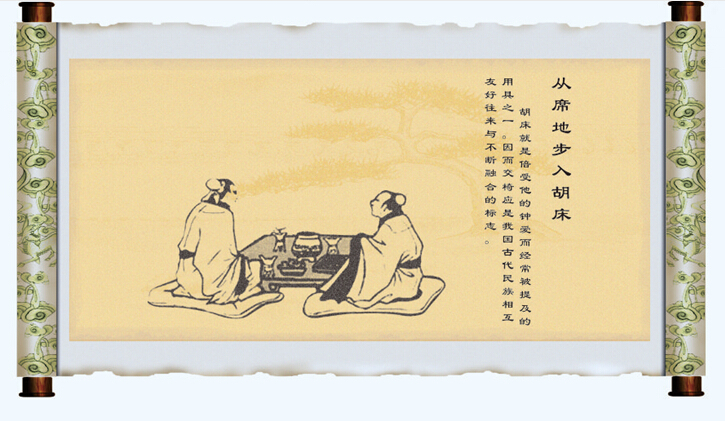 从席地步入胡床
胡床就是倍受他的钟爱而经常被提及的
用具之一。因而交椅应是我国古代民族相互
友好往来与不断融合的标志。